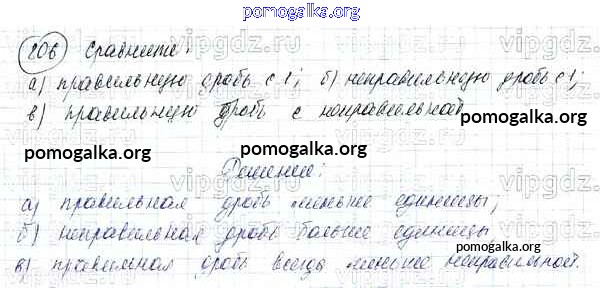 pomogalka.org
206 Сравните:
а) правильную дробь с 1; б) неправильную дробь с 1;
в) правильную дробь с неправильной.
pomogalka.org pomogalka.org
pomogalka.org
Решение:
а) правильная дробь меньше единицы;
б) неправильная дробь больше единицы
pomogalka.org
в) правильная дробь всегда меньше неправильной.